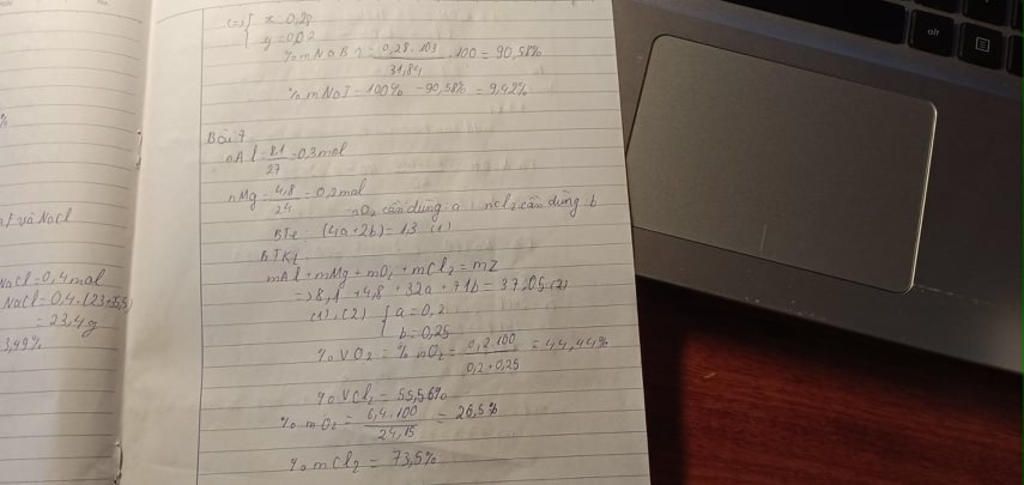 %
nF và NaCl
NaCl = 0,4 mol
NaCl = 0,4 . (23+35,5)
= 23,4 g
3,49%
(=) { x = 0,28
y = 0,02
%mNaBr = 0,28 . 103 / 31,84 . 100 = 90,58%
%mNaI = 100% - 90,58% = 9,42%
Bài 7
nAl = 8,1 / 27 = 0,3 mol
nMg = 4,8 / 24 = 0,2 mol
nO2 cần dùng: a nCl2 cần dùng: b
BTe: (4a + 2b) = 1,3 (1)
BTKL:
mAl + mMg + mO2 + mCl2 = mZ
=> 8,1 + 4,8 + 32a + 71b = 37,05 (2)
(1), (2) { a = 0,2
b = 0,25
%VO2 = %nO2 = 0,2 . 100 / 0,2 + 0,25 = 44,44%
%VCl2 = 55,56%
%mO2 = 6,4 . 100 / 24,15 = 26,5%
%mCl2 = 73,5%
alt